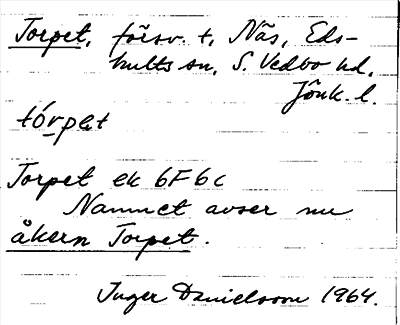 Torpet, försv. t. Näs, Eds-
hults sn, S. Vedbo hd,
Jönk. l.
tórpet
Torpet ek 6F6c
Namnet avser nu
åkern Torpet.
Inger Danielsson 1964.